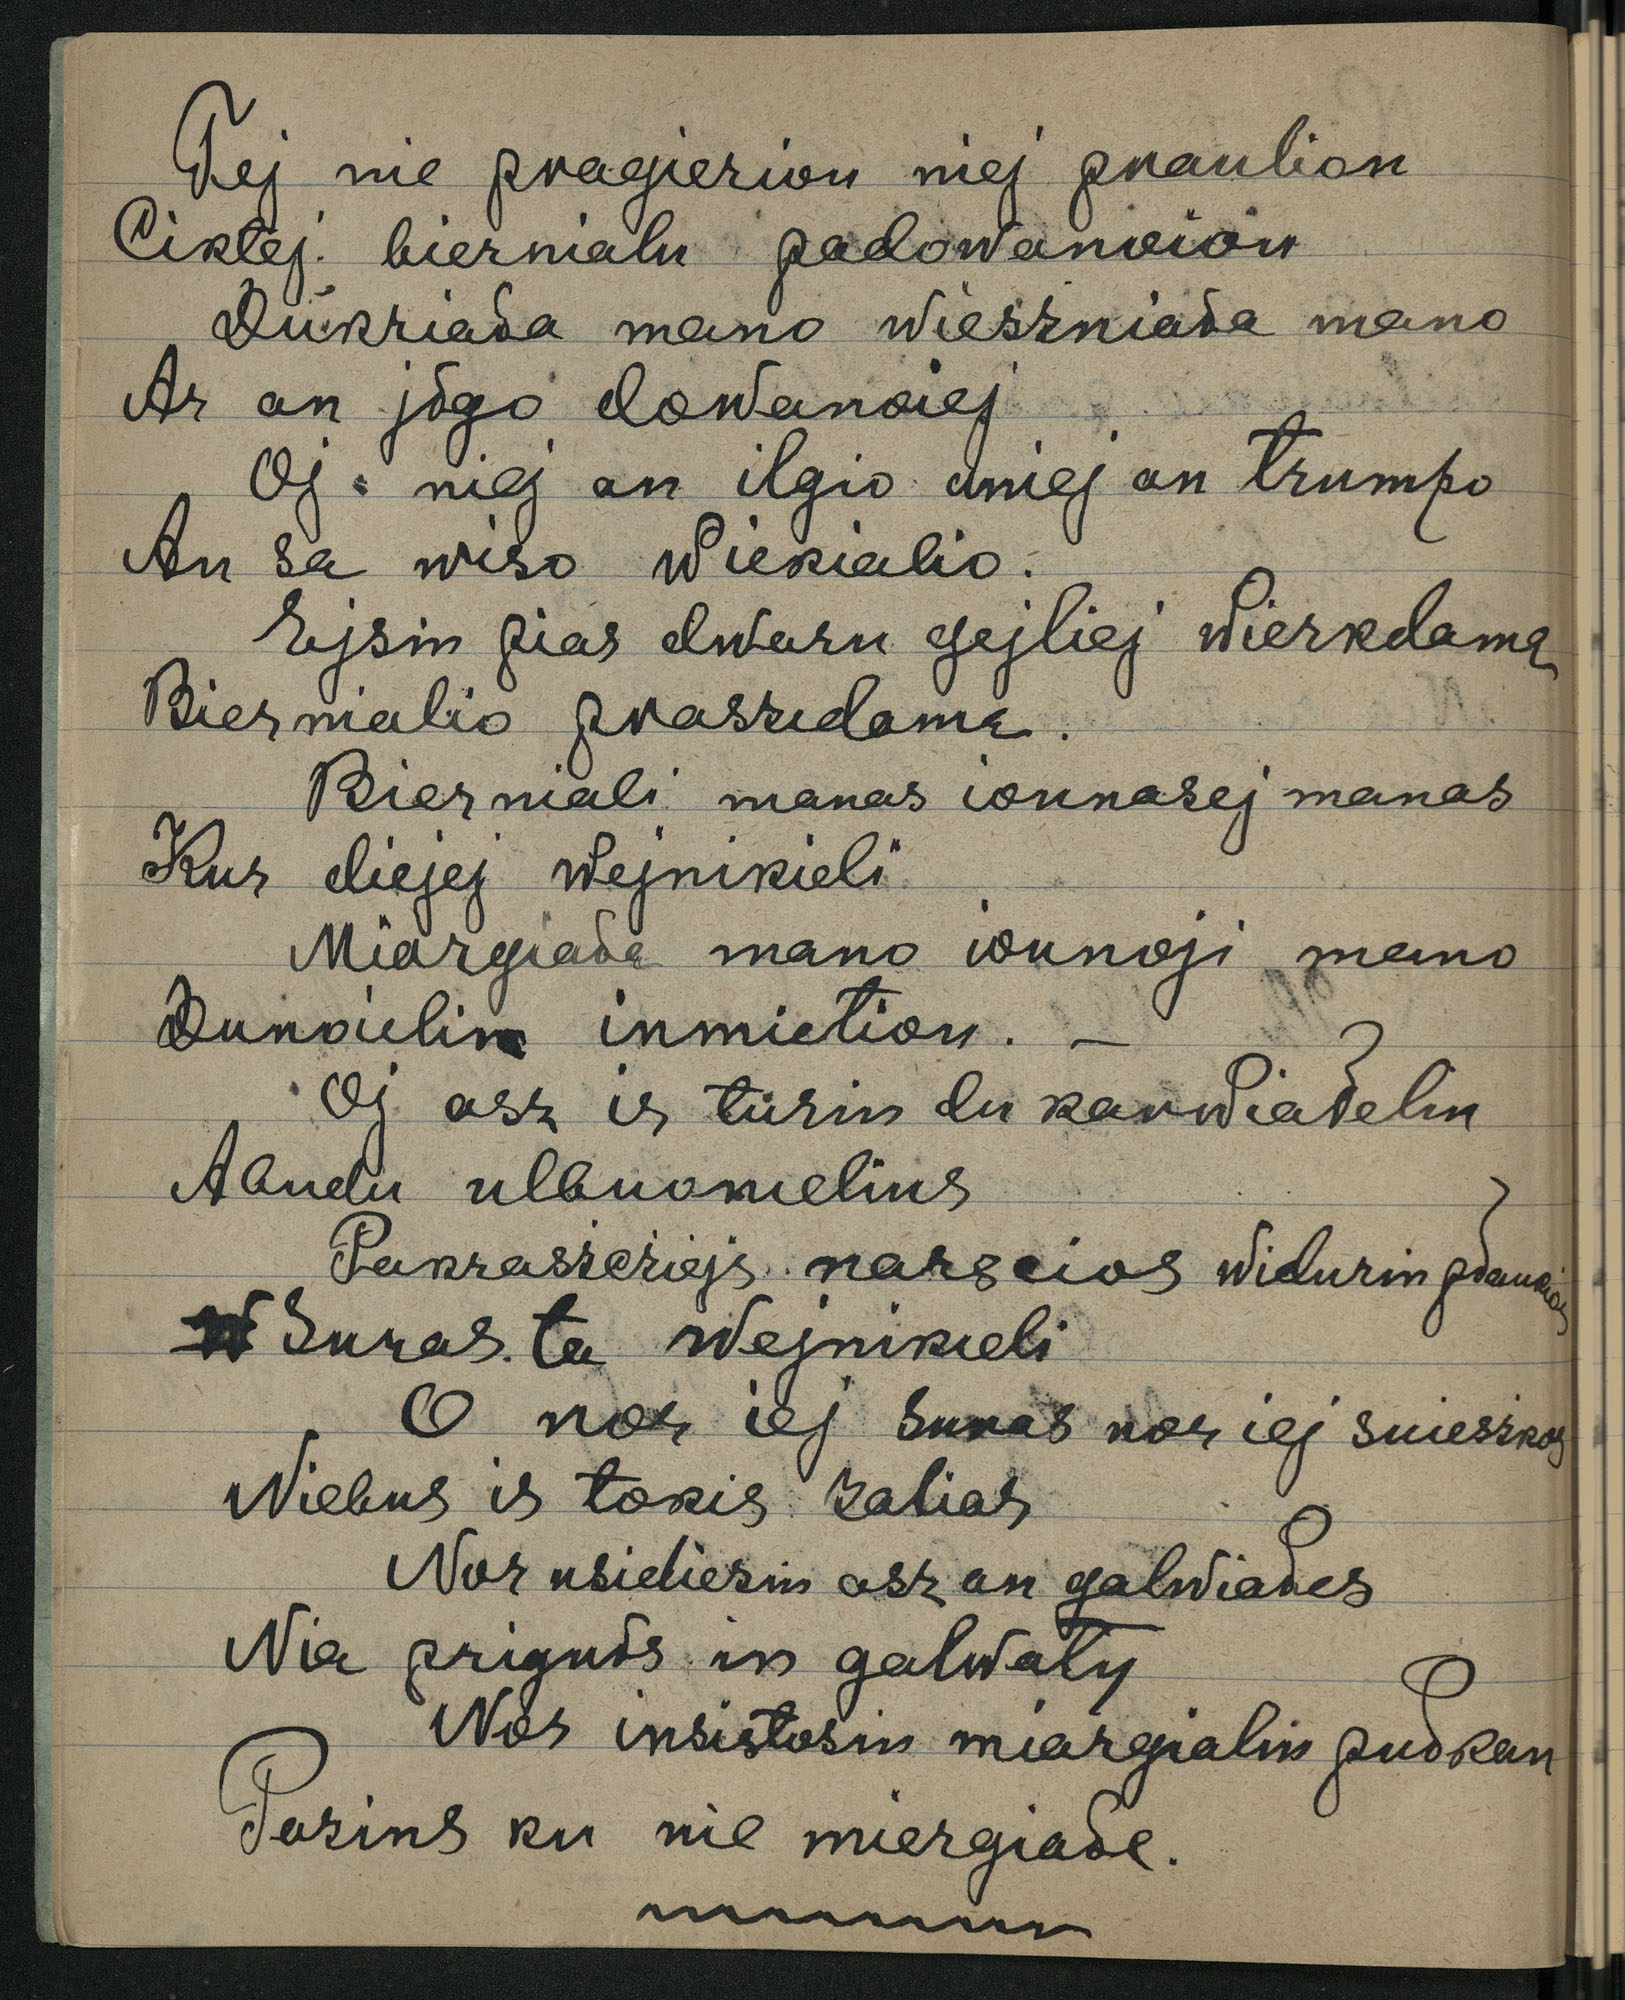 Tej nie pragierion niej praulion
Ciktej biernialu padowanoion
Dukriała mano wieszniała mano
Ar an jłgo dowanoiej
Oj niej an ilgio aniej an trumpo
An sa wiso wiekialio.
Ejsin pias dwaru gejliej wierkdama
Biernialio praszidama.
Bierniali manas iounasej manas
Kur diejej wejnikieli
Miargiała mano iounoji mano
Dunoielin inmietion. —
Oj asz ir turin du karwiałelin
Abudu ulbuonielius
Pakraszcziejs narscios widurin płaukios
Suras ta wejnikieli
O nor iej suras nor iej suieszkos
Niebus ir tokis zalias
Nor usidiesin asz an galwiałes
Nia priguls in galwaty
Nor insistosin miargialin pułkan
Pazins ku nie miergiałe.